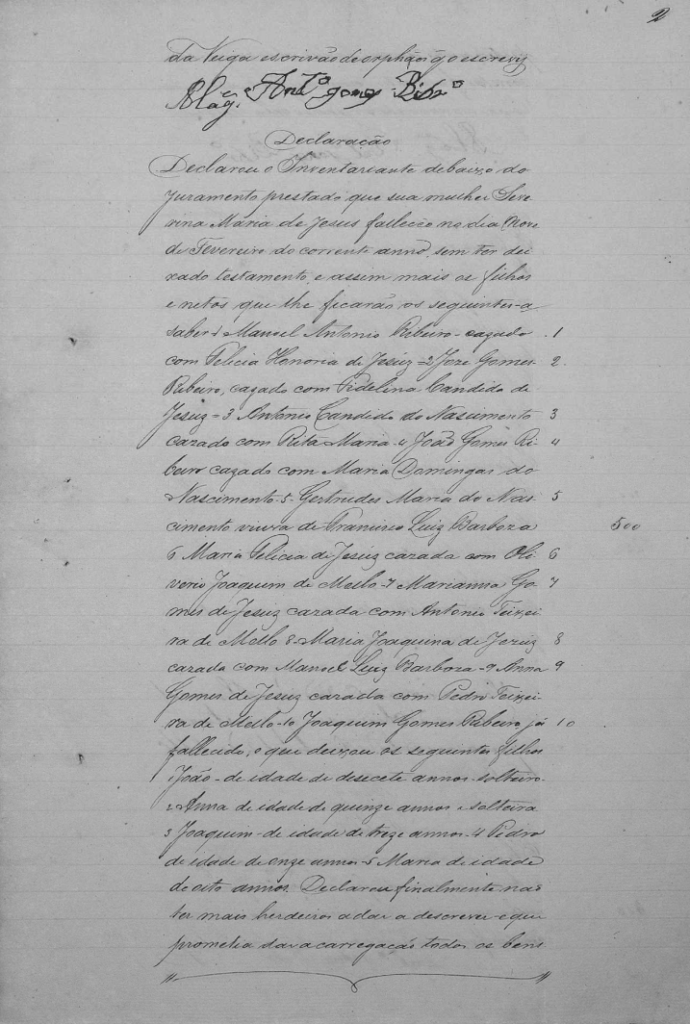 2
da Veiga escrivão de orphãos q̃ o escrevy
Antº gomes Ribrº
Declaração
Declarou o Inventariante debaixo do
Juramento prestado que sua mulher Seve
rina Maria de Jesus falleceo no dia Nove
de Fevereiro do corrente anno, sem ter dei
xado testamento, e assim mais os filhos
e netos que lhe ficarão os seguintes a
saber 1 Manoel Antonio Ribeiro cazado 1
com Felicia Honoria de Jesuz = 2 Jozé Gomes 2
Ribeiro, cazado com Fidelina Candida de
Jesuz = 3 Antonio Candido do Nascimento 3
cazado com Rita Maria 4 João Gomes Ri 4
beiro cazado com Maria Domingas do
Nascimento 5 Gertrudes Maria do Nas 5
cimento viuva de Francisco Luiz Barboza 500
6 Maria Felicia de Jesuz cazada com Oli 6
verio Joaquim de Mello = 7 Marianna Go 7
mes de Jesuz cazada com Antonio Teixei
ra de Mello 8 Maria Joaquina de Jezuz 8
cazada com Manoel Luiz Barboza = 9 Anna 9
Gomes de Jesuz cazada com Pedro Teixei
ra de Mello 10 Joaquim Gomes Ribeiro já 10
fallecido, o que deixou os seguintes filhos
1 João de idade de desecete annos solteiro
2 Anna de idade de quinze annos e solteira
3 Joaquim de idade de treze annos 4 Pedro
de idade de onze annos 5 Maria de idade
de oito annos. Declarou finalmente não
ter mais herdeiros a dar a descrever e que
prometia dar a carregação todos os bens